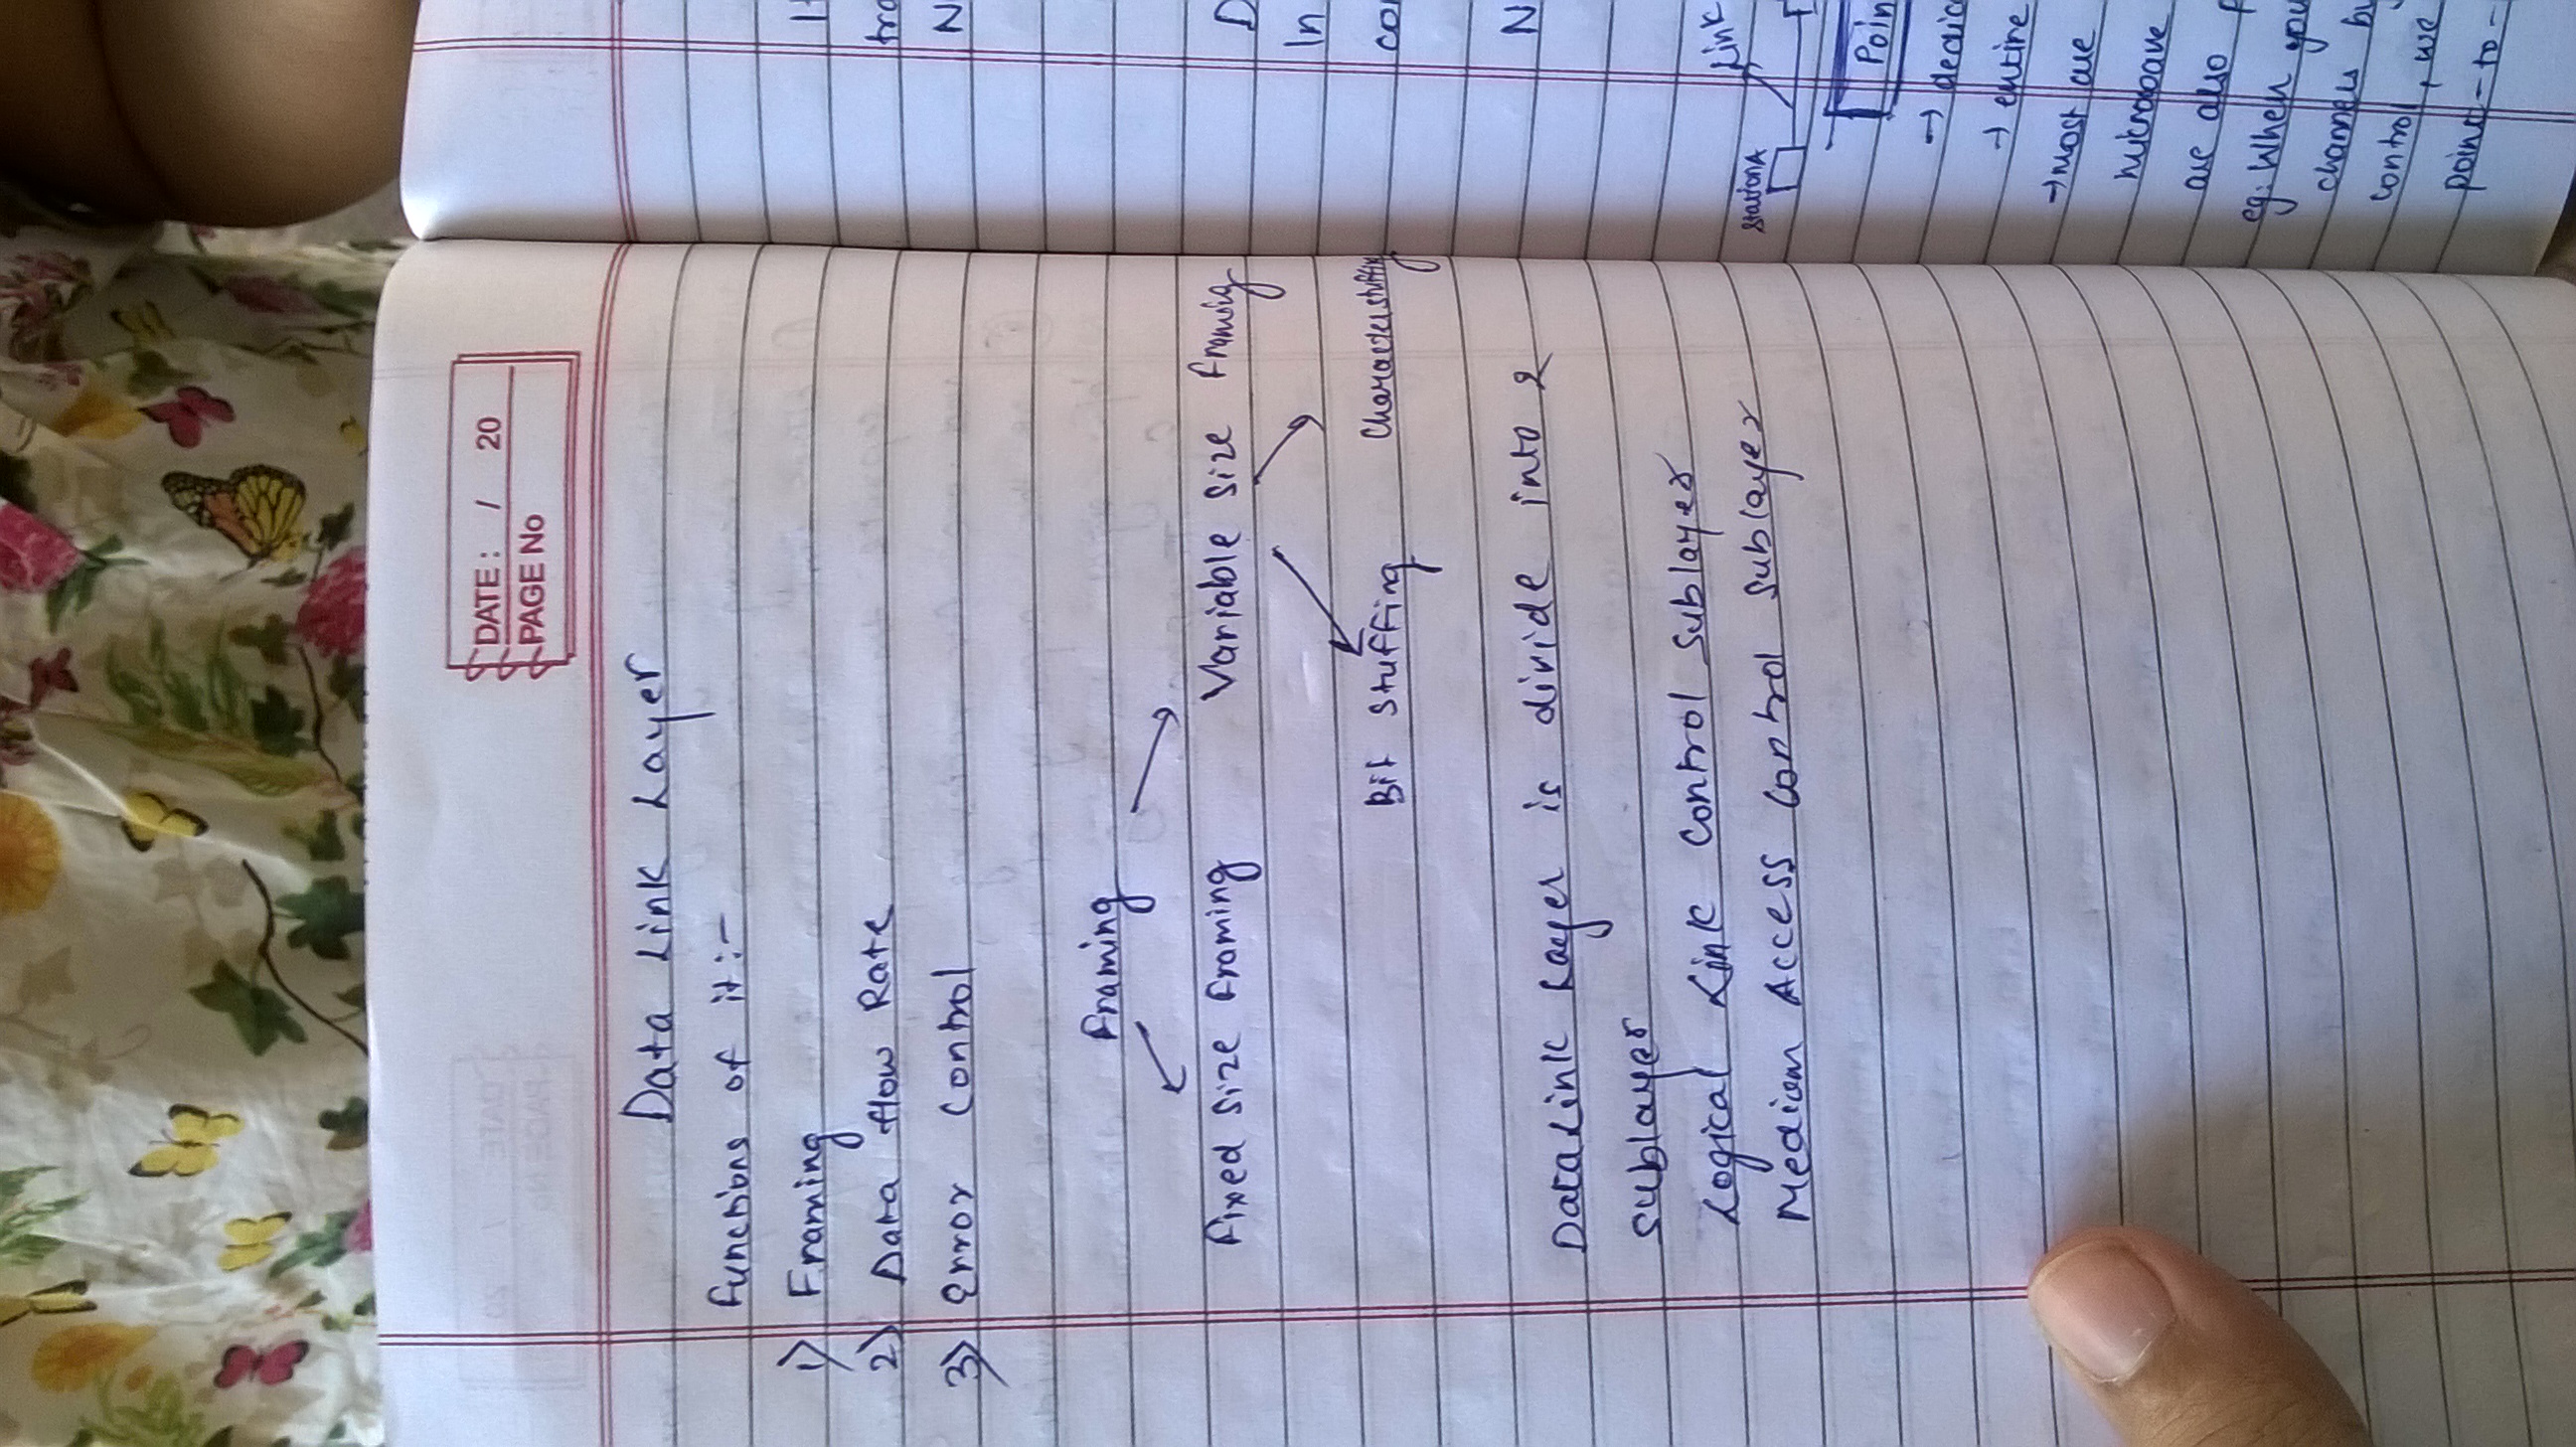 DATE : / 20
PAGE No
Data Link Layer
Functions of it :-
1) Framing
2) Data flow Rate
3) Error Control
Framing
Fixed Size Framing Variable Size Framing
Bit Stuffing Character stuffing
Data Link Layer is divide into 2
sublayer
Logical Link Control Sublayer
Medium Access Control Sublayer
In
Link
Station A
Poin
→ dedic
→ entire
→ most are
microwave
are also
eg: When you
channels by
control, we
point - to -